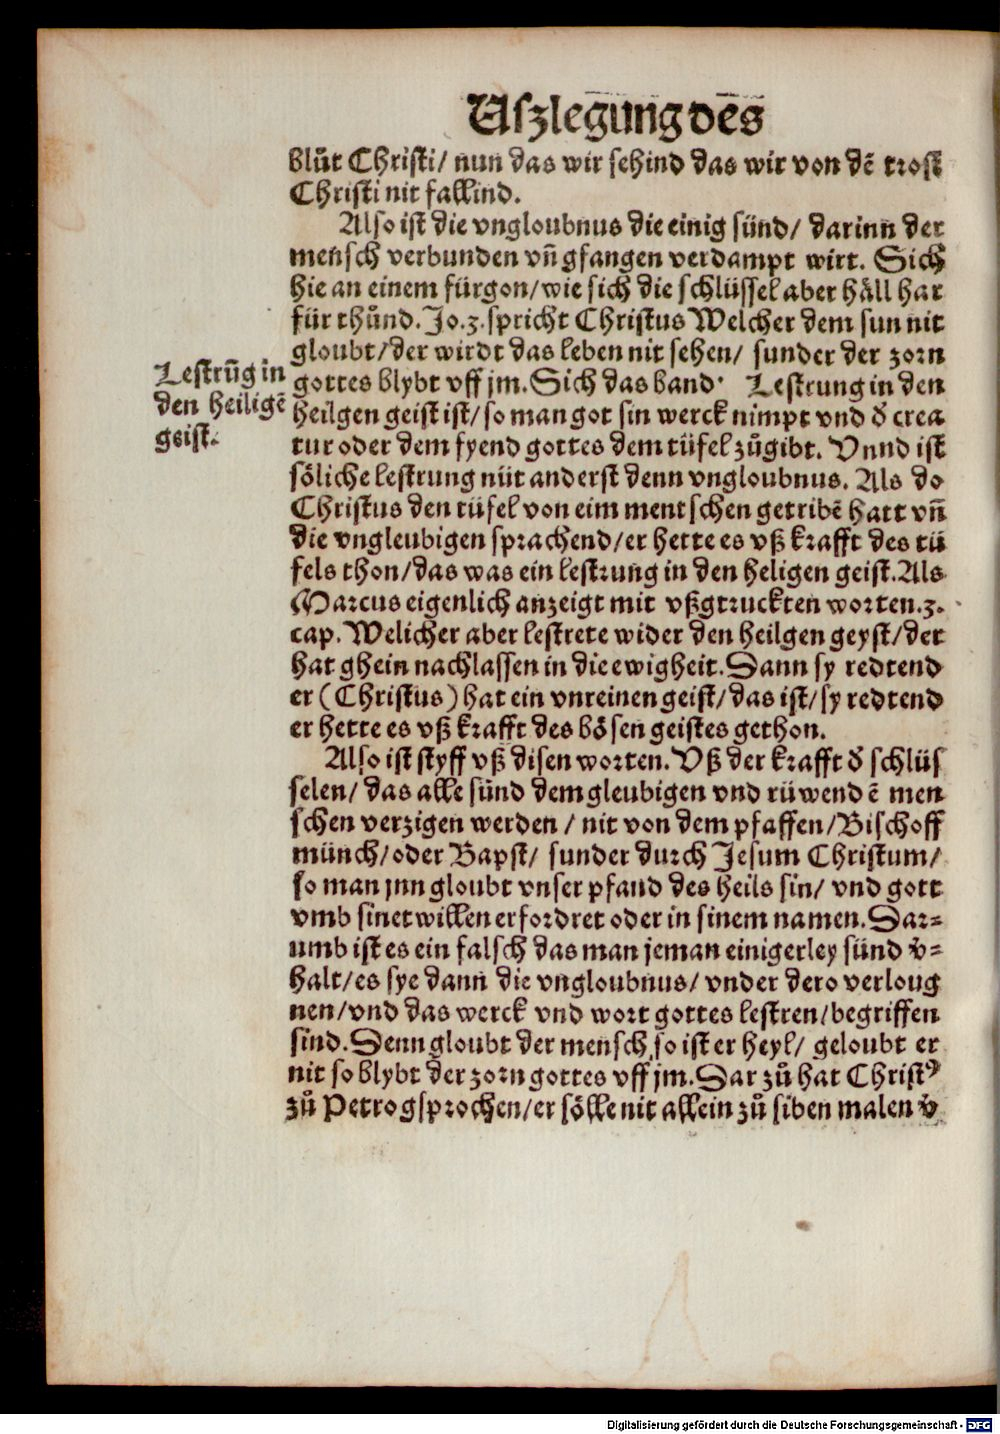 Uſzlegūng des
blůt Chriſti/ nun das wir ſehind das wir von dē troſt
Chriſti nit fallind.
Alſo iſt die vngloubnus die einig ſünd/ darinn der
menſch verbunden vn̄ gfangen verdampt wirt. Sich
hie an einem fürgon/ wie ſich die ſchlüſſel aber häll har
für thůnd. Jo.3. ſpricht Chriſtus Welcher dem ſun nit
gloubt/ der wirdt das leben nit ſehen/ ſunder der zorn
gottes blybt vff jm. Sich das band. Leſtrung in den
heilgen geiſt iſt/ ſo man got ſin werck nimpt vnd ď crea
tur oder dem fyend gottes dem tüfel zůgibt. Vnnd iſt
ſöliche leſtrung nüt anderſt denn vngloubnus. Als do
Chriſtus den tüfel von eim mentſchen getribē hatt vn̄
die vngleubigen ſprachend/ er hette es vß krafft des tü
fels thon/ das was ein leſtrung in den heligen geiſt. Als
Marcus eigenlich anzeigt mit vßgtruckten worten.3.
cap. Welicher aber leſtrete wider den heilgen geyſt/ der
hat ghein nachlaſſen in die ewigheit. Dann ſy redtend
er (Chriſtus) hat ein vnreinen geiſt/ das iſt/ ſy redtend
er hette es vß krafft des böſen geiſtes gethon.
Leſtrūg in
den heiligē
geiſt.
Alſo iſt ſtyff vß diſen worten. Vß der krafft ď ſchlüſ
ſelen/ das alle ſünd dem gleubigen vnd rüwendē men
ſchen verzigen werden / nit von dem pfaffen/ Biſchoff
münch/ oder Bapſt/ ſunder durch Jeſum Chriſtum/
ſo man jnn gloubt vnſer pfand des heils ſin/ vnd gott
vmb ſinet willen erfordret oder in ſinem namen. Dar⸗
umb iſt es ein falſch das man jeman einigerley ſünd v̓⸗
halt/ es ſye dann die vngloubnus/ vnder dero verloug
nen/ vnd das werck vnd wort gottes leſtren/ begriffen
ſind. Denn gloubt der menſch, ſo iſt er heyl/ geloubt er
nit ſo blybt der zorn gottes vff jm. Dar zů hat Chriſtꝰ
zů Petro gſprochen/ er ſölle nit allein zů ſiben malen v̓
Digitalisierung gefördert durch die Deutsche Forschungsgemeinschaft - DFG